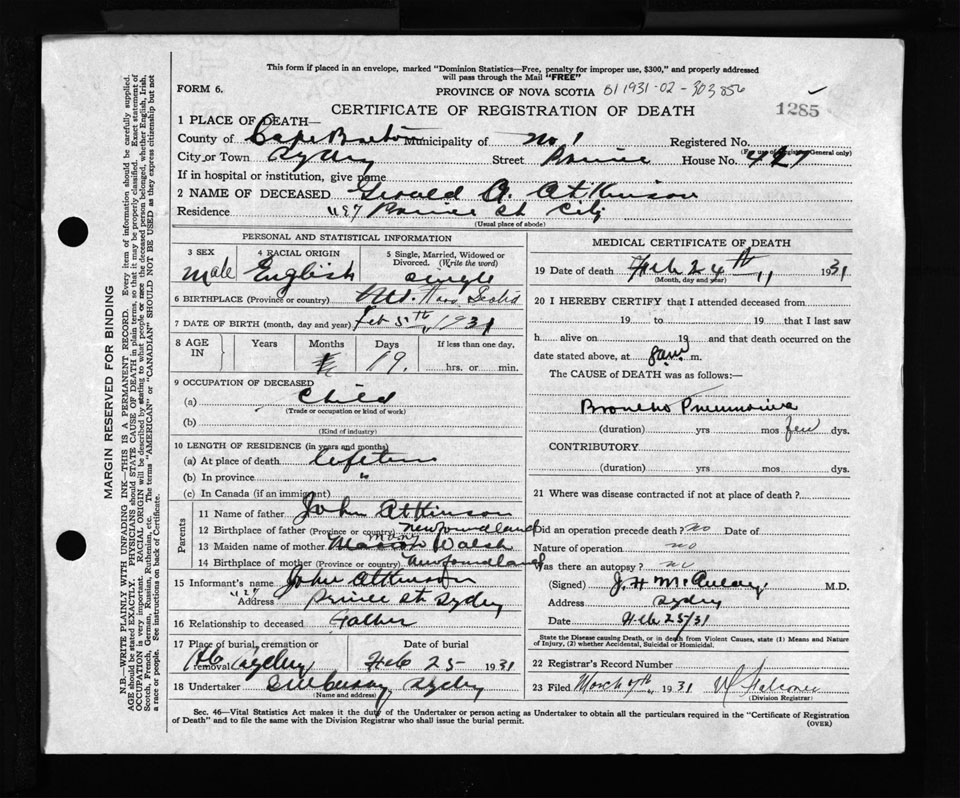 This form if placed in an envelope, marked "Dominion Statistics—Free, penalty for improper use, $300," and properly addressed
will pass through the Mail "FREE"
FORM 6.
PROVINCE OF NOVA SCOTIA 61 1931-02-303856
CERTIFICATE OF REGISTRATION OF DEATH
1285
1 PLACE OF DEATH—
County of Cape Breton Municipality of No 1 Registered No.
(For use of Registrar General only)
City or Town Sydney Street Prince House No. 427
If in hospital or institution, give name
2 NAME OF DECEASED Gerald A. Atkinson
Residence Prince St. City
(Usual place of abode)
PERSONAL AND STATISTICAL INFORMATION
3 SEX Male
4 RACIAL ORIGIN English
5 Single, Married, Widowed or Divorced. (Write the word) single
6 BIRTHPLACE (Province or country) Nova Scotia
7 DATE OF BIRTH (month, day and year) Feb 5th 1931
8 AGE IN Years Months Days 19. If less than one day, hrs. or min.
9 OCCUPATION OF DECEASED
(a) Child
(Trade or occupation or kind of work)
(b)
(Kind of industry)
10 LENGTH OF RESIDENCE (in years and months)
(a) At place of death lifetime
(b) In province "
(c) In Canada (if an immigrant)
Parents
11 Name of father John Atkinson
12 Birthplace of father (Province or country) Newfoundland
13 Maiden name of mother Mary Walsh
14 Birthplace of mother (Province or country) Newfoundland
15 Informant's name John Atkinson
Address Prince St. Sydney
16 Relationship to deceased Father
17 Place of burial, cremation or removal Sydney
Date of burial Feb 25 1931
18 Undertaker Sydney
(Name and address)
MEDICAL CERTIFICATE OF DEATH
19 Date of death Feb 24th 1931
(Month, day and year)
20 I HEREBY CERTIFY that I attended deceased from
19 to 19 that I last saw
h alive on 19 and that death occurred on the
date stated above, at 8 am m.
The CAUSE OF DEATH was as follows:—
Broncho Pneumonia
(duration) yrs mos few dys.
CONTRIBUTORY
(duration) yrs mos dys.
21 Where was disease contracted if not at place of death?
Did an operation precede death? No Date of
Nature of operation no
Was there an autopsy? no
(Signed) J. H. McAulay M.D.
Address Sydney
Date Feb 25/31
State the Disease causing Death, or in death from Violent Causes, state (1) Means and Nature
of Injury, (2) whether Accidental, Suicidal or Homicidal.
22 Registrar's Record Number
23 Filed March 7th 1931
(Division Registrar)
Sec. 46—Vital Statistics Act makes it the duty of the Undertaker or person acting as Undertaker to obtain all the particulars required in the "Certificate of Registration
of Death" and to file the same with the Division Registrar who shall issue the burial permit.
(OVER)
MARGIN RESERVED FOR BINDING
N.B.—WRITE PLAINLY WITH UNFADING INK—THIS IS A PERMANENT RECORD. Every item of information should be carefully supplied.
AGE should be stated EXACTLY. PHYSICIANS should STATE CAUSE OF DEATH in plain terms, so that it may be properly classified. Exact statement of
OCCUPATION is very important. RACIAL ORIGIN will be described by stating to what people or race the deceased person belonged, whether English, Irish,
Scotch, French, German, Russian, Ruthenian, etc. The terms "AMERICAN" or "CANADIAN" SHOULD NOT BE USED as they express citizenship but not
a race or people. See instructions on back of Certificate.